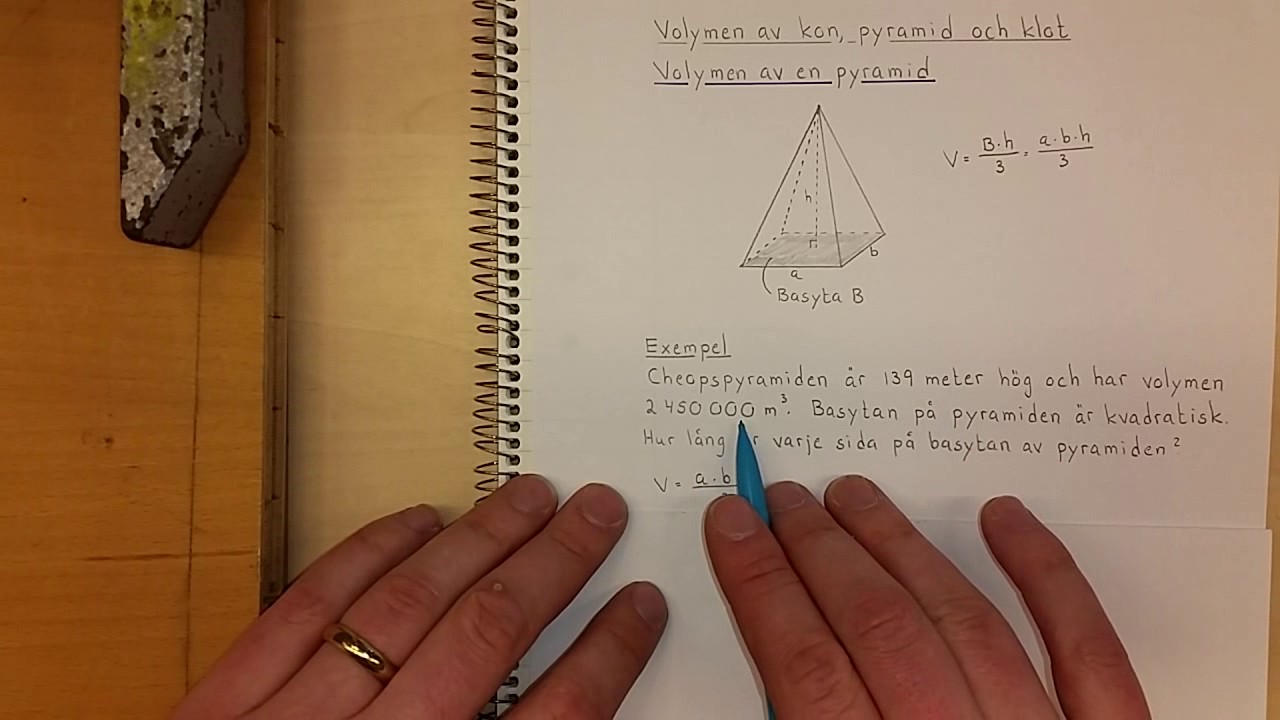 Volymen av kon, pyramid och klot
Volymen av en pyramid
V = B·h/3 = a·b·h/3
h
b
a
Basyta B
Exempel
Cheopspyramiden är 139 meter hög och har volymen
2 450 000 m³. Basytan på pyramiden är kvadratisk.
Hur lång varje sida på basytan av pyramiden?
V = a·b